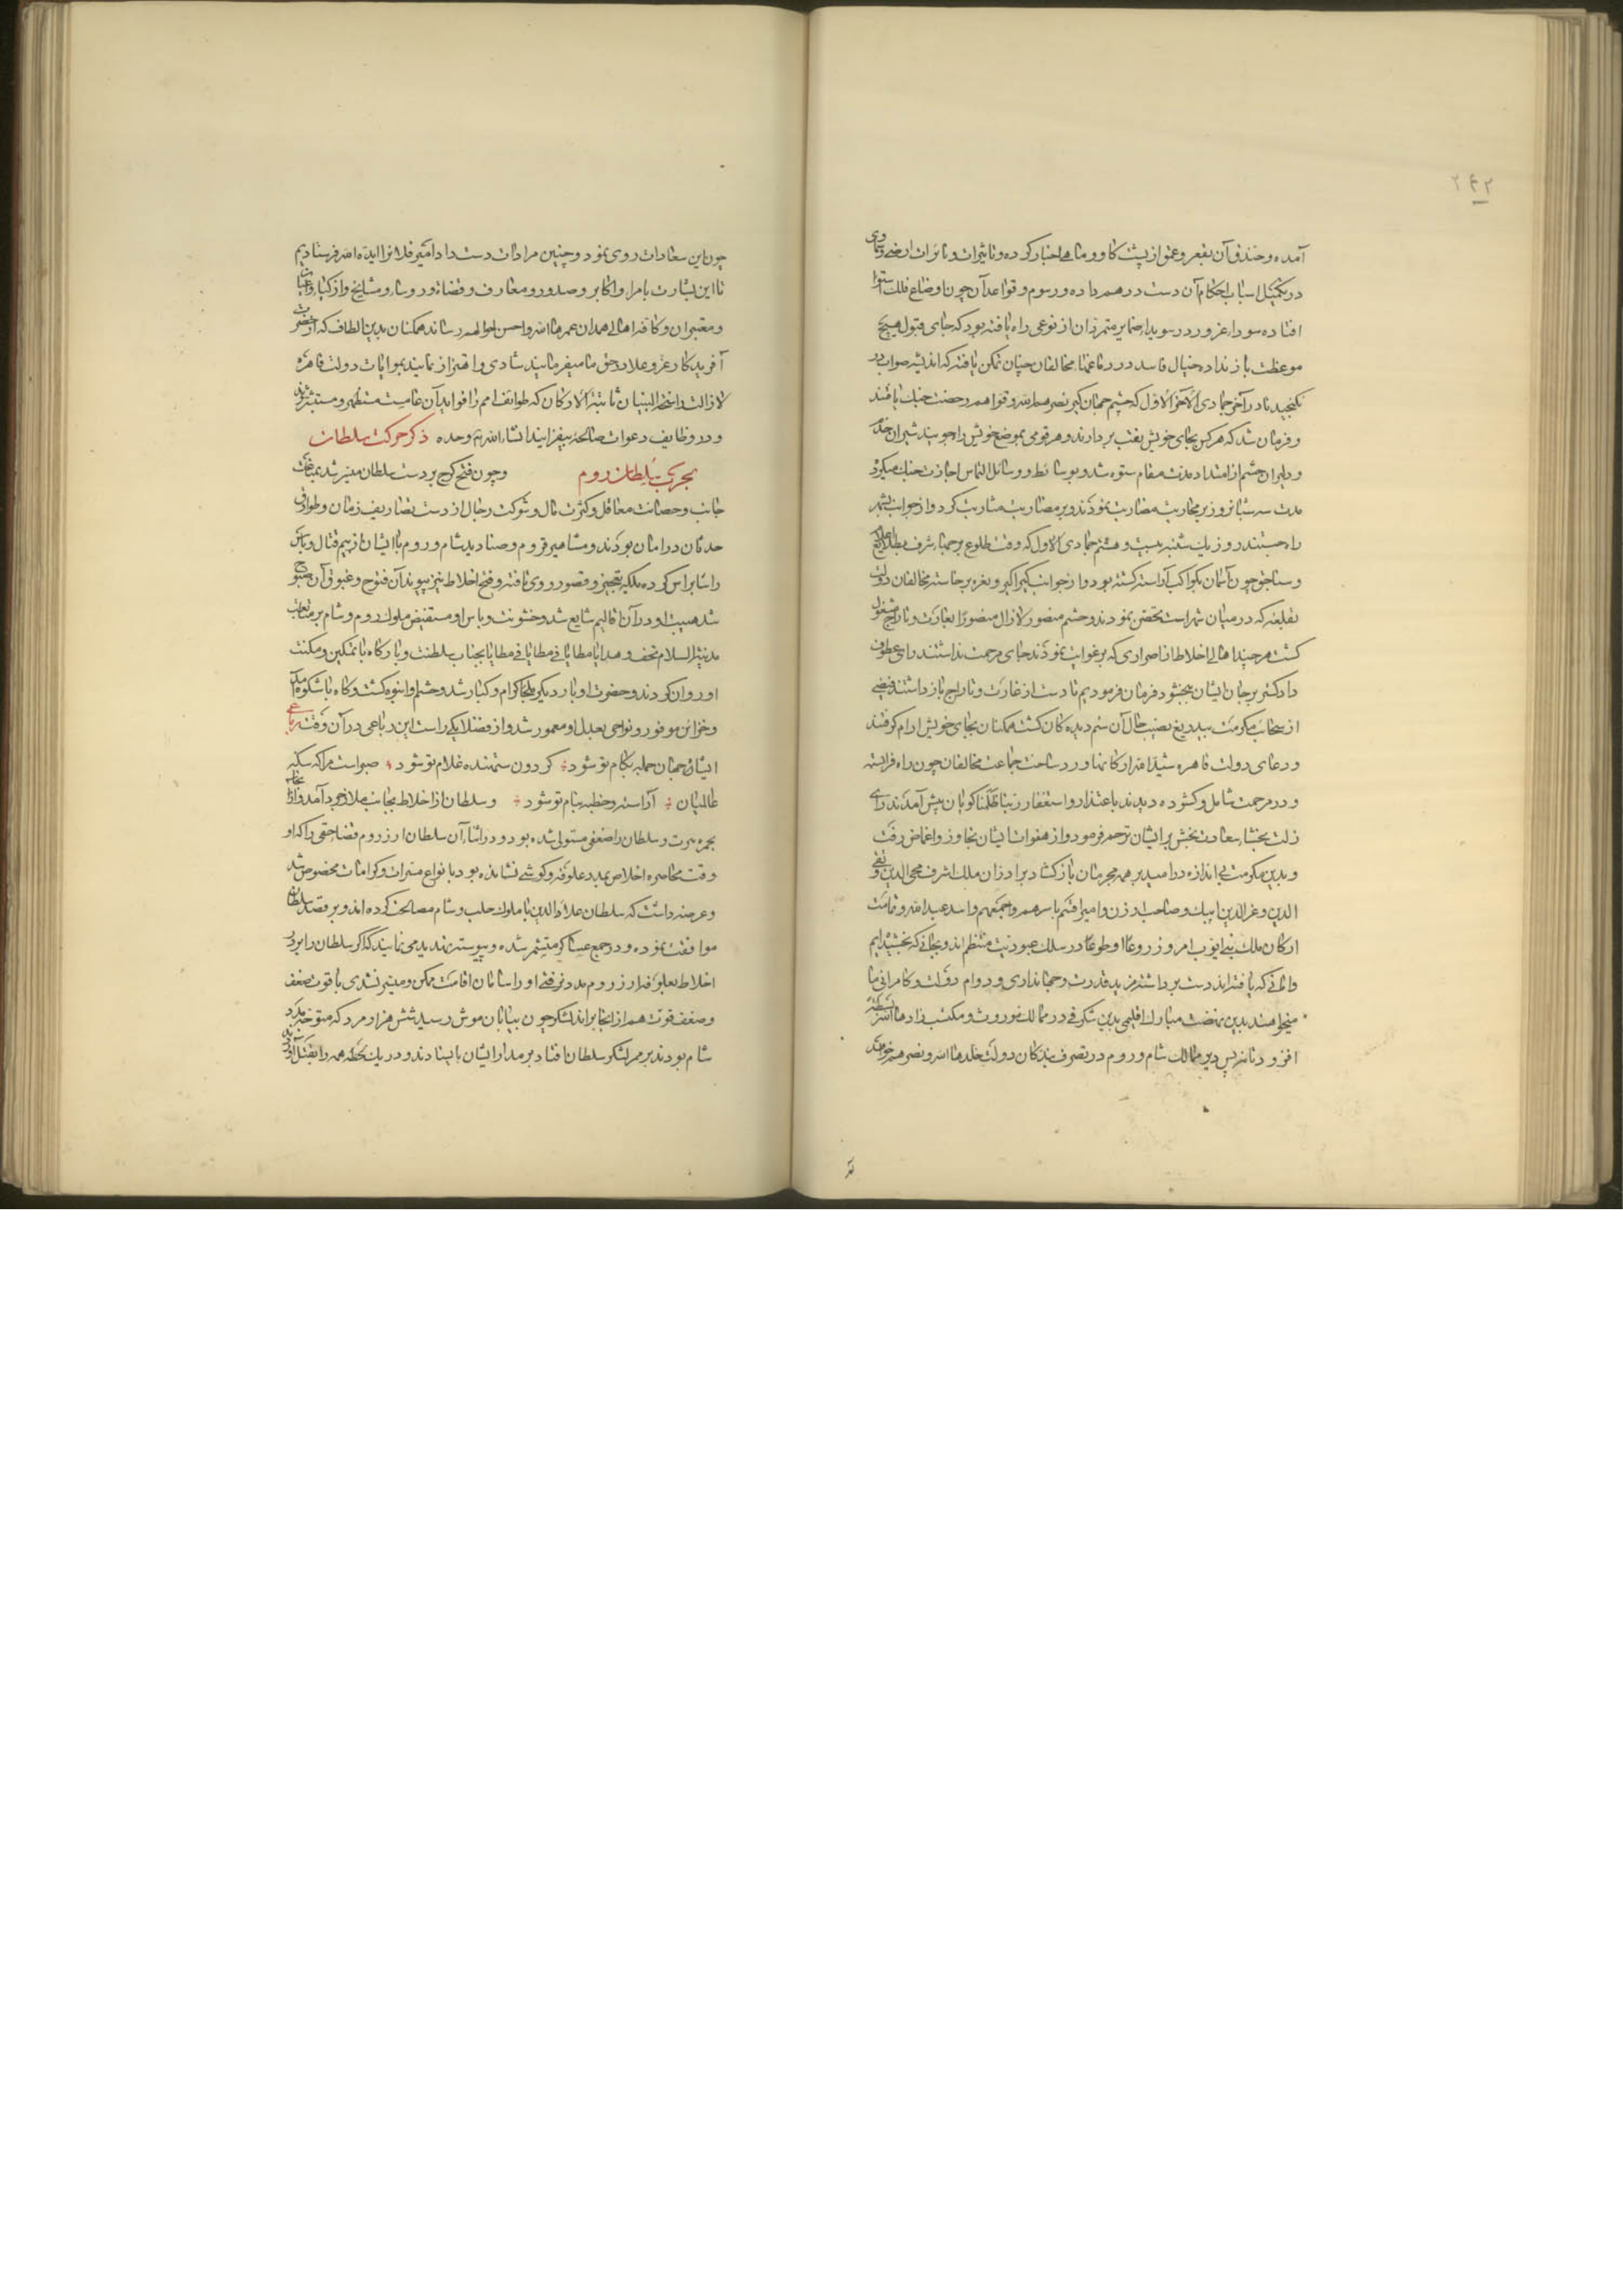 ۲۴۲
آمده و خندق آن بقعر و عمق از پشت گاو و ماهی اخبار کرده و تاثیرات و تاثرات ارضی و سماوی
در تکمیل اسباب احکام آن دست در هم داده و رسوم و قواعد آن چون اوضاع فلک استوا
افتاده سوداء غرور در سویداء ضمایر متمردان از نوعی راه یافته بود که جای قبول هیچ
موعظت باز نداده خیال فاسد در دماغها مخالفان چنان تمکن یافته که اندیشه صواب در
نگنجید تا در آخر جمادی الآخر الاول که حشم جهان گیر نصرهم الله و قواهم رخصت جنگ یافتند
و فرمان شد که هر کس بجای خویش نقب بردارند و هر قومی بموضع خویش راه جویند شیران
و دلیران حشم از امتداد مدت مقام ستوه شده و بوسائط و رسائل التماس اجازت جنگ میکرد
مدت سه شبانروز بر محاربت مضاربت نمودند و بر مضاربت مثابرت کرد و از جوانب شهر
راه جستند روز یک شنبه بیست و هشتم جمادی الاول که وقت طلوع بر جهاء شرف مطالع
و سناجق چون آسمان بکواکب آراسته گشته بود و از جوانب تکبیر اکبر و نعره برخاسته مخالفان دولت
بقلعه که در میان شهر است تحصن نمودند و حشم منصور لازال منصورا بغارت و تاراج مشغول
گشت هر چند اهالی اخلاط از اصراری که بر غوایت نمودند جای مرحمت نداشتند رای عطوف
دادگستر بر جان ایشان ببخشود فرمان فرمودیم تا دست از غارت و تاراج باز داشتند و فیضی
از سحاب مکرمت بیدریغ نصیب حال آن ستم دیدگان گشت همگنان بجای خویش ارام گرفتند
و دعای دولت قاهره شید الله ارکانها ورد ساخت جماعت مخالفان چون راه فرار بسته
و در مرحمت شامل و گشوده دیدند باعتذار و استغفار ربنا ظلمنا گویان پیش آمدند رای
زلت بخشاء سعادت بخش بر ایشان ترحم فرمود و از هفوات ایشان تجاوز و اغماض رفت
و بدین مکرمت بی اندازه در امید بر همه مجرمان باز گشاد برادران ملک اشرف مجیر الدین و تقی
الدین و عز الدین ایبک و صاحب ارزن و امیر اقسم باسرهم و اجمعهم و اسد عبد الله و تمامت
ارکان ملک بنی ایوب امروز روعا او طوعا در سلک عبودیت منتظم اند و بجانی که بخشیدیم
و امانی که یافته اند دست برداشته مزید قدرت و جهانداری و دوام دولت و کامرانی ما
میخواهند بدین نهضت مبارک اقلیمی بدین شگرفی در ممالک موروث و مکتسب زادها الله بسطة
افزود تا نه بس دیر ممالک شام و روم در تصرف بندگان دولت خلدها الله و نصرهم خواهد
چون این سعادات روی نمود و چنین مرادات دست داد امیر فلانرا ایده الله فرستادیم
تا این بشارت بامرا و اکابر و صدور و معارف و قضاة و رؤساء و مشایخ و از کبار و اعیان
و معتبران و کافه اهالی همدان عمرها الله و احسن احوالهم رساند همگنان بدین الطاف که از حضرت
آفریدگار عز و علا در حق ما میفرمایند شادی و اهتزاز نمایند بموایات دولت قاهره
لازالت راسخة البنیان ثابتة الارکان که طوائف امم را فواید آن عامست مستظهر و مستبشر شوند
و در وظایف دعوات صالحه بیفزایند انشاء الله تم وحده ذکر حرکت سلطان
بحرب سلطان روم و چون فتح کرج بر دست سلطان میسر شد
جانب و حصانت معاقل و کثرت مال و شوکت رجال از دست تصاریف زمان و طوارق
حدثان در امان بودند و مشاهیر قروم و صنادید شام و روم با ایشان از بیم قتال و باس
راسا براس کرده بلکه تعجیز و قصور روی تافته و فتح اخلاط نیز پیوند آن فتوح و غبوق آن صبوح
شد هیبت او در آن اقالیم شایع شد و خشونت و باس او مستفیض ملوک روم و شام بر متابعت
مدینة السلام تحف و هدایا مطایا فی مطایا فی مطایا بجناب سلطنت و بارگاه با تمکین و مکنت
او روان کردند و حضرت او بار دیگر ملجا کرام و کبار شد و حشم او انبوه گشت و گاه با شکوه ملک
و خزائن موفور و نواحی بعدل او معمور شد و از فضلا یکی راست این رباعی در آن وقت رباعی
ایشاه جهان جمله بکام تو شود ⁘ گردون ستمنده غلام تو شود ⁘ صبر است مرا که سکه
طالبان ⁘ آراسته و خطبه بنام تو شود ⁘ و سلطان از اخلاط بجانب ملازجرد آمد و از انجا
بخرتبرت و سلطان را ضعفی مستولی شده بود و در اثناء آن سلطان ارزروم قضا حقی را که او
وقت محاصره اخلاص بمدد علوفه و کوششی نشانده بود بانواع مبرات و کرامات مخصوص شد
و عرضه داشت که سلطان علاء الدین با ملوک حلب و شام مصالحت کرده اند و بر قصد سلطان
موافقت نموده و در جمع عساکر متشمر شده و پیوسته تهدید می نمایند که اگر سلطان را بر در
اخلاط بعلوفه از ارزروم مدد نرفتی او را سامان اقامت ممکن و میسر نشدی با قوت ضعف
و ضعف قوت هم از انجا براند لشکر چون بیابان موش رسید شش هزار مرد که متوجه مدد
شام بودند بر ممر لشکر سلطان افتاد بر مدار ایشان بایستادند و در یک لحظه همه را بقتل آوردند